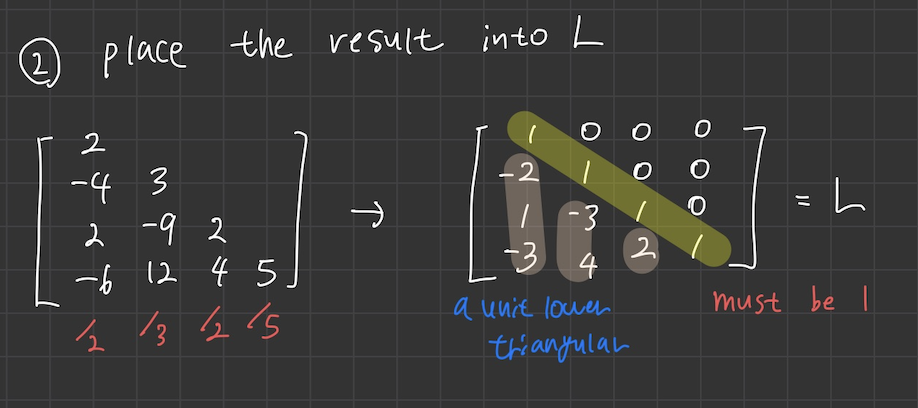 ② place the result into L
2
-4 3
2 -9 2
-6 12 4 5
/2 /3 /2 /5
→
1 0 0 0
-2 1 0 0
1 -3 1 0
-3 4 2 1
= L
a unit lower
triangular
must be 1